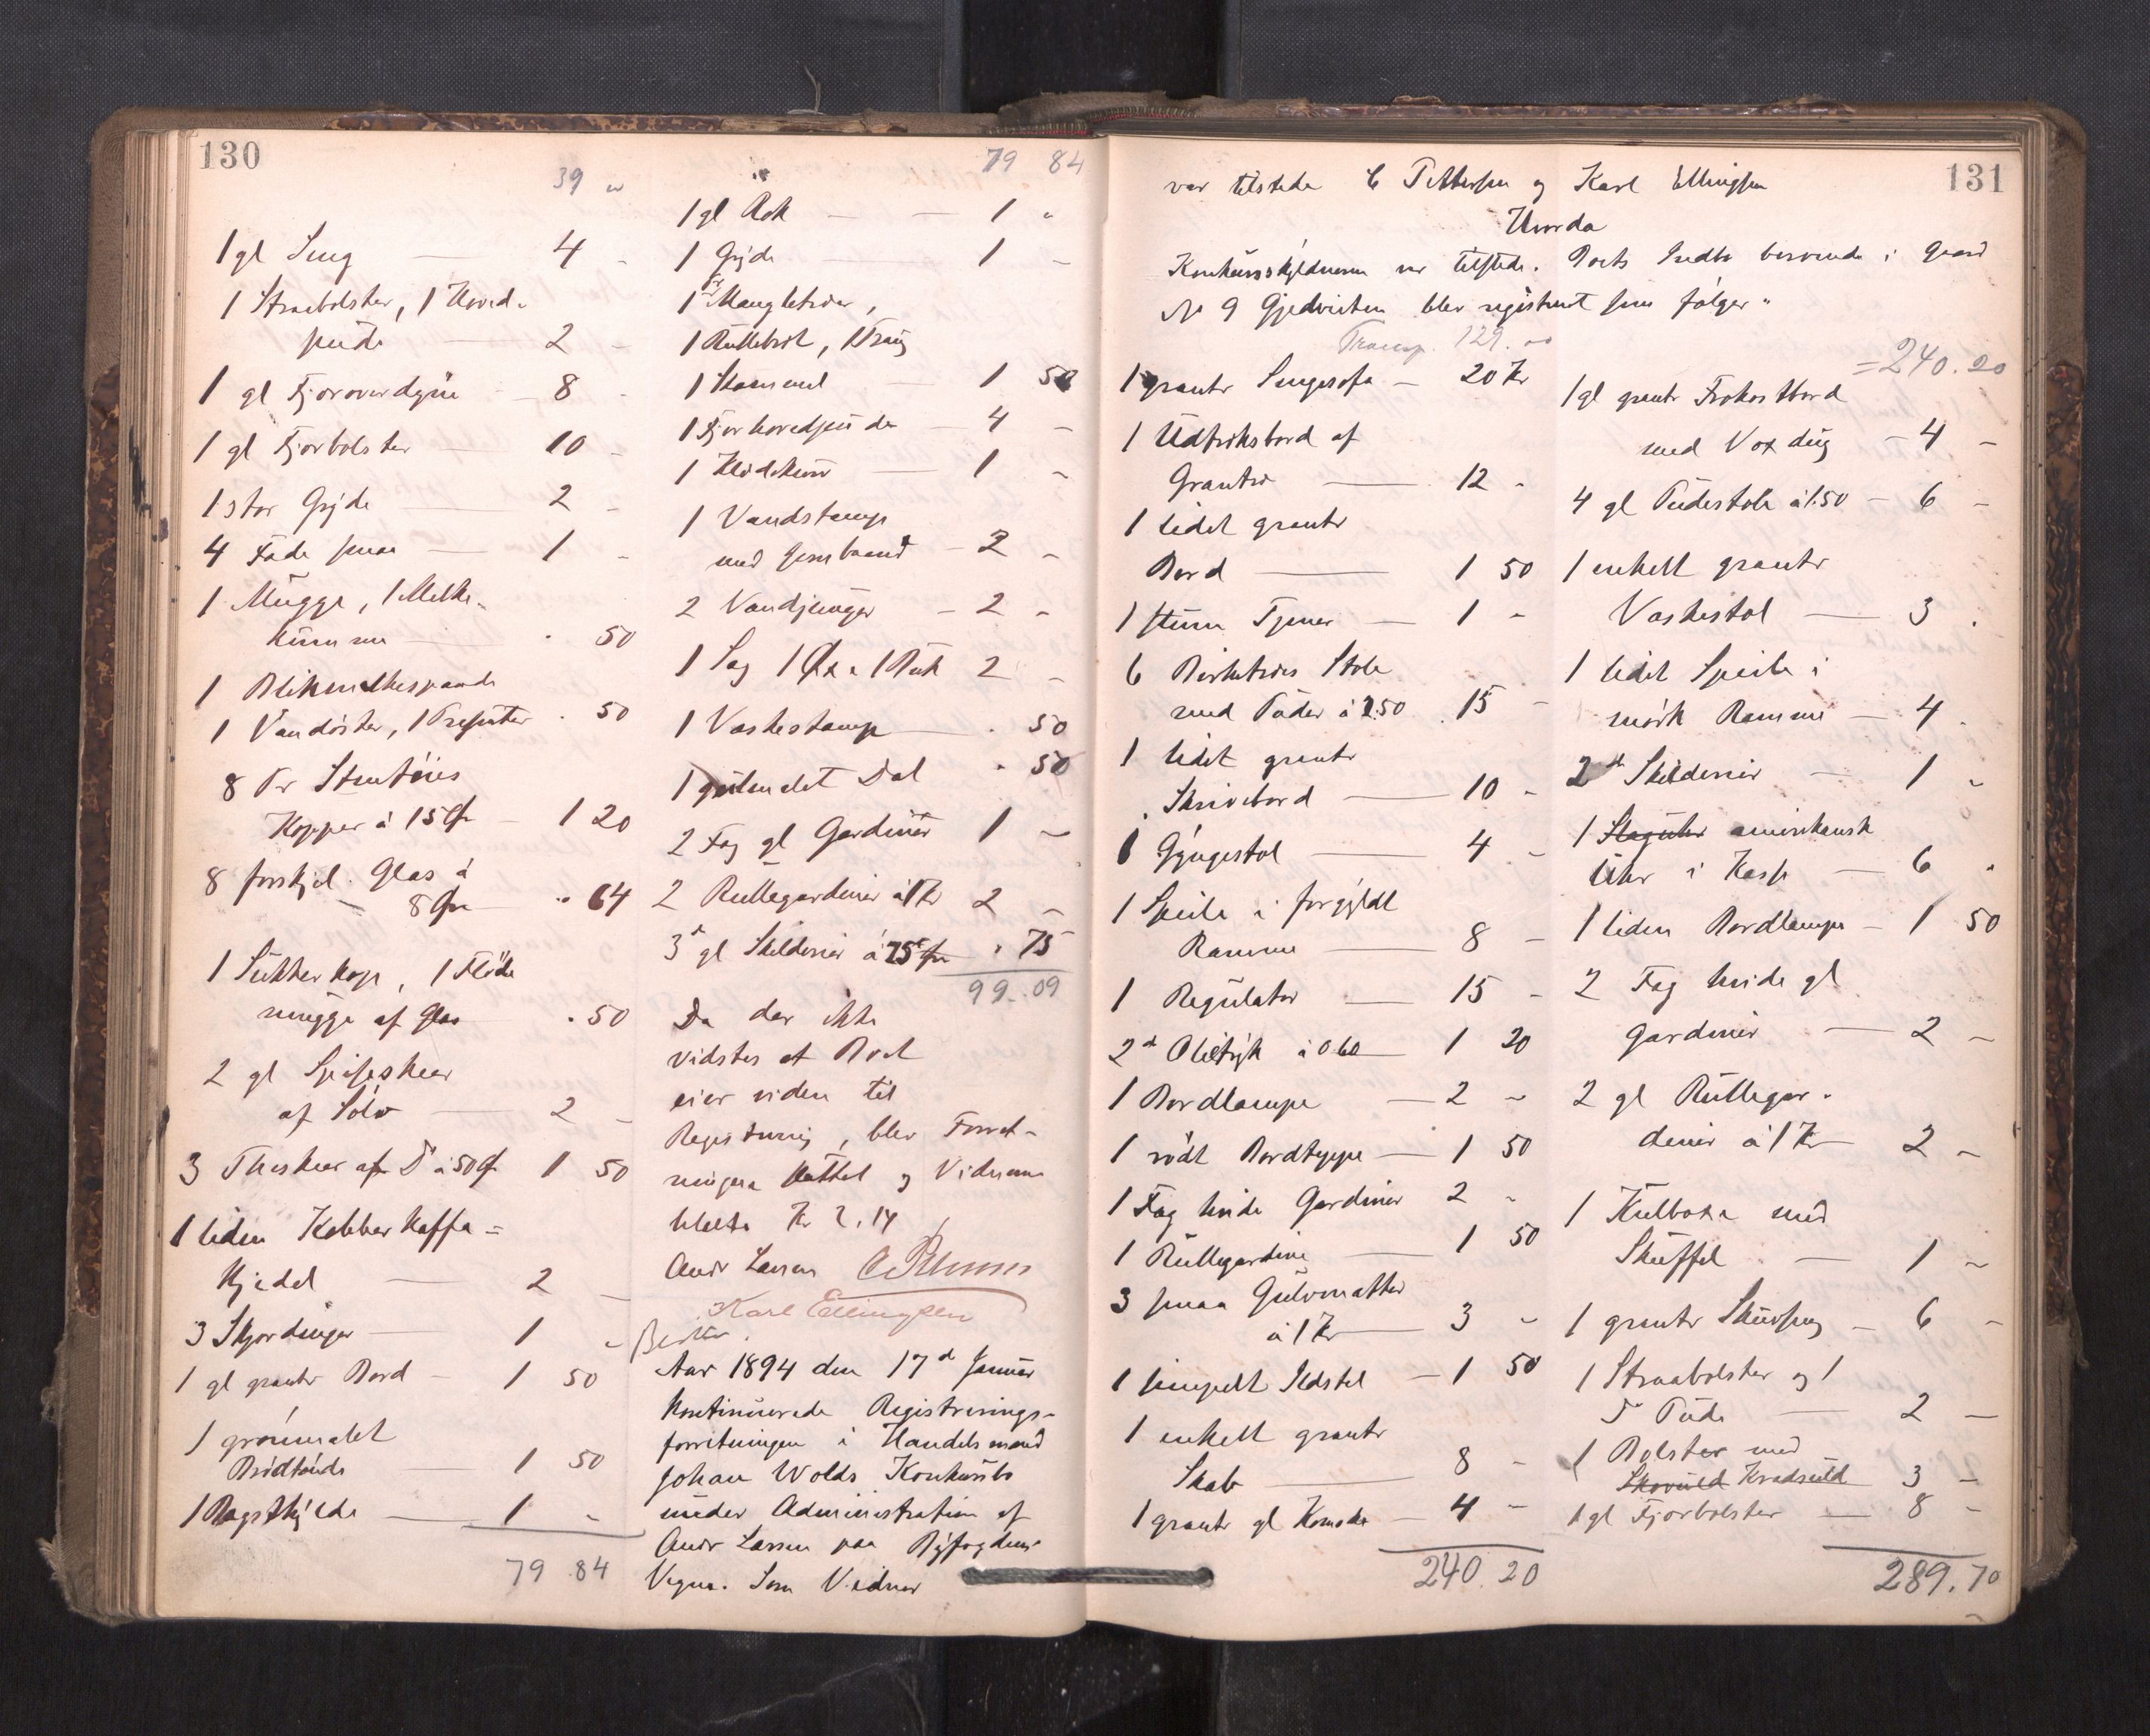 130
39 "
1 gl Seng — 4 -
1 Straabolster, 1 Hoved-
pude — 2 -
1 gl Fjæroverdyne — 8 -
1 gl Fjærbolster — 10 -
1 stor Gryde — 2 -
4 Fade smaa — 1 -
1 Mugge, 1 Melke-
kumme — . 50
1 Blikmelkespand
1 Vandøster, 1 . 50
8 Pr Stentøies
Kopper à 15 Øre — 1 20
8 forskjel. Glas à
8 Øre — " 64
1 Sukkerkop, 1 Fløde
mugge af Glas . 50
2 gl Spiseskeer
af Sølv — 2 -
3 Theskeer af Do à 50 Ø 1 50
1 liden Kobberkaffe=
kjedel — 2 -
3 Skjærdinger — 1 -
1 gl grantr Bord — 1 50
1 grønmalet
Brødbøtte — 1 50
1 — 1 -
79 . 84
79 84
1 gl Ark — — 1 "
1 Gryde — 1 -
1 Pr Mangletræer,
1 Rullebræt, 1 Traug
1 — 1 50
1 Fjærhovedpude — 4 -
1 Klædekurv — 1 -
1 Vandstamp
med Jernbaand — 2 -
2 Vandpinger — 2 -
1 Sag 1 Øx 2 -
1 Vaskestamp — . 50
1 gulmalet Dal " 50
2 Fag gl Gardiner 1 -
2 Rullegardiner à 1 Kr 2 -
3 gl Skilderier à 25 Øre " 75
99 . 09
Da der ikke
vidstes at Boet
eier videre til
Registrering, blev Forret-
ningen sluttet og Vidnerne
betalte Kr 2.14
Andr Larsen
Karl Ellingsen
Aar 1894 den 17d Januar
kontinuerede Registrerings-
forretningen i Handelsmand
Johan Wolds Konkursbo
under Administration af
Andr Larsen paa Byfogdens
Vegne. Som Vidner
131
var tilstede C Pettersen og Karl Ellingsen
Konkursskyldneren var tilstede. Boets Indbo beroende i Gaard
No 9 blev registreret som følger "
Transp. 129. 00
1 grantr Sengesofa — 20 Kr
1 Udtræksbord af
Grantræ — 12 -
1 lidet grantr
Bord — 1 50
1 — 1 -
6 Birketræs Stole
med Puder à 2.50 . 15 -
1 lidet grantr
Skrivebord — 10 -
1 Gyngestol — 4 -
1 Speile i forgyldt
Ramme — 8 -
1 Regulator — 15 -
2d Olietryk à 0.60 — 1 20
1 Bordlampe — 2 -
1 rødt Bordteppe — 1 50
1 Fag hvide Gardiner 2 -
1 Rullegardine — 1 50
3 smaa Gulvmatter
à 1 Kr — 3 -
1 simpelt Ildstel — 1 50
1 enkelt grantr
Skab — 8 -
1 grantr gl Komode — 4 -
240. 20
= 240. 20
1 gl grantr Frokostbord
med Voxdug — 4 -
4 gl Pudestole à 1.50 — 6 -
1 enkelt grantr
Vaskestol — 3 .
1 lidet Speile i
mørk Ramme — 4 .
2d Skilderier — 1 -
1 Slaguhr amerikansk
Uhr i Kasse — 6 "
1 liden Bordlampe — 1 50
2 Fag hvide gl
Gardiner — 2 -
2 gl Rullegar-
dener à 1 Kr — 2 -
1 Kulboxe med
Skuffel — 1 -
1 grantr Skuvseng — 6 -
1 Straabolster og 1
Do Pude — 2 -
1 Bolster med
Skovuld Kradsuld — 3 -
1 gl Fjærbolster — 8 -
289. 70